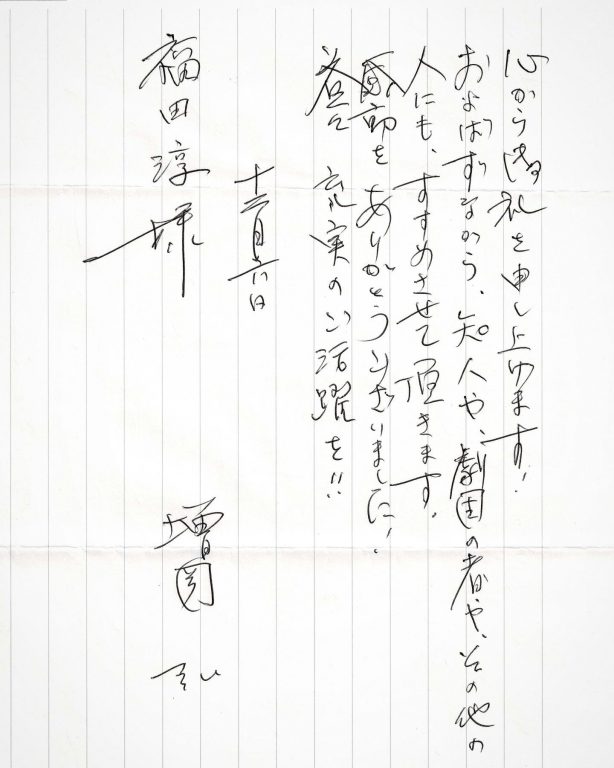 心から御礼を申し上げます!
およばずながら、知人や、劇団の者や、その他の
人にも、すすめさせて頂きます。
を ありがとうございました!
充実のご活躍を!!
十二月六日
福田淳様
増岡 弘